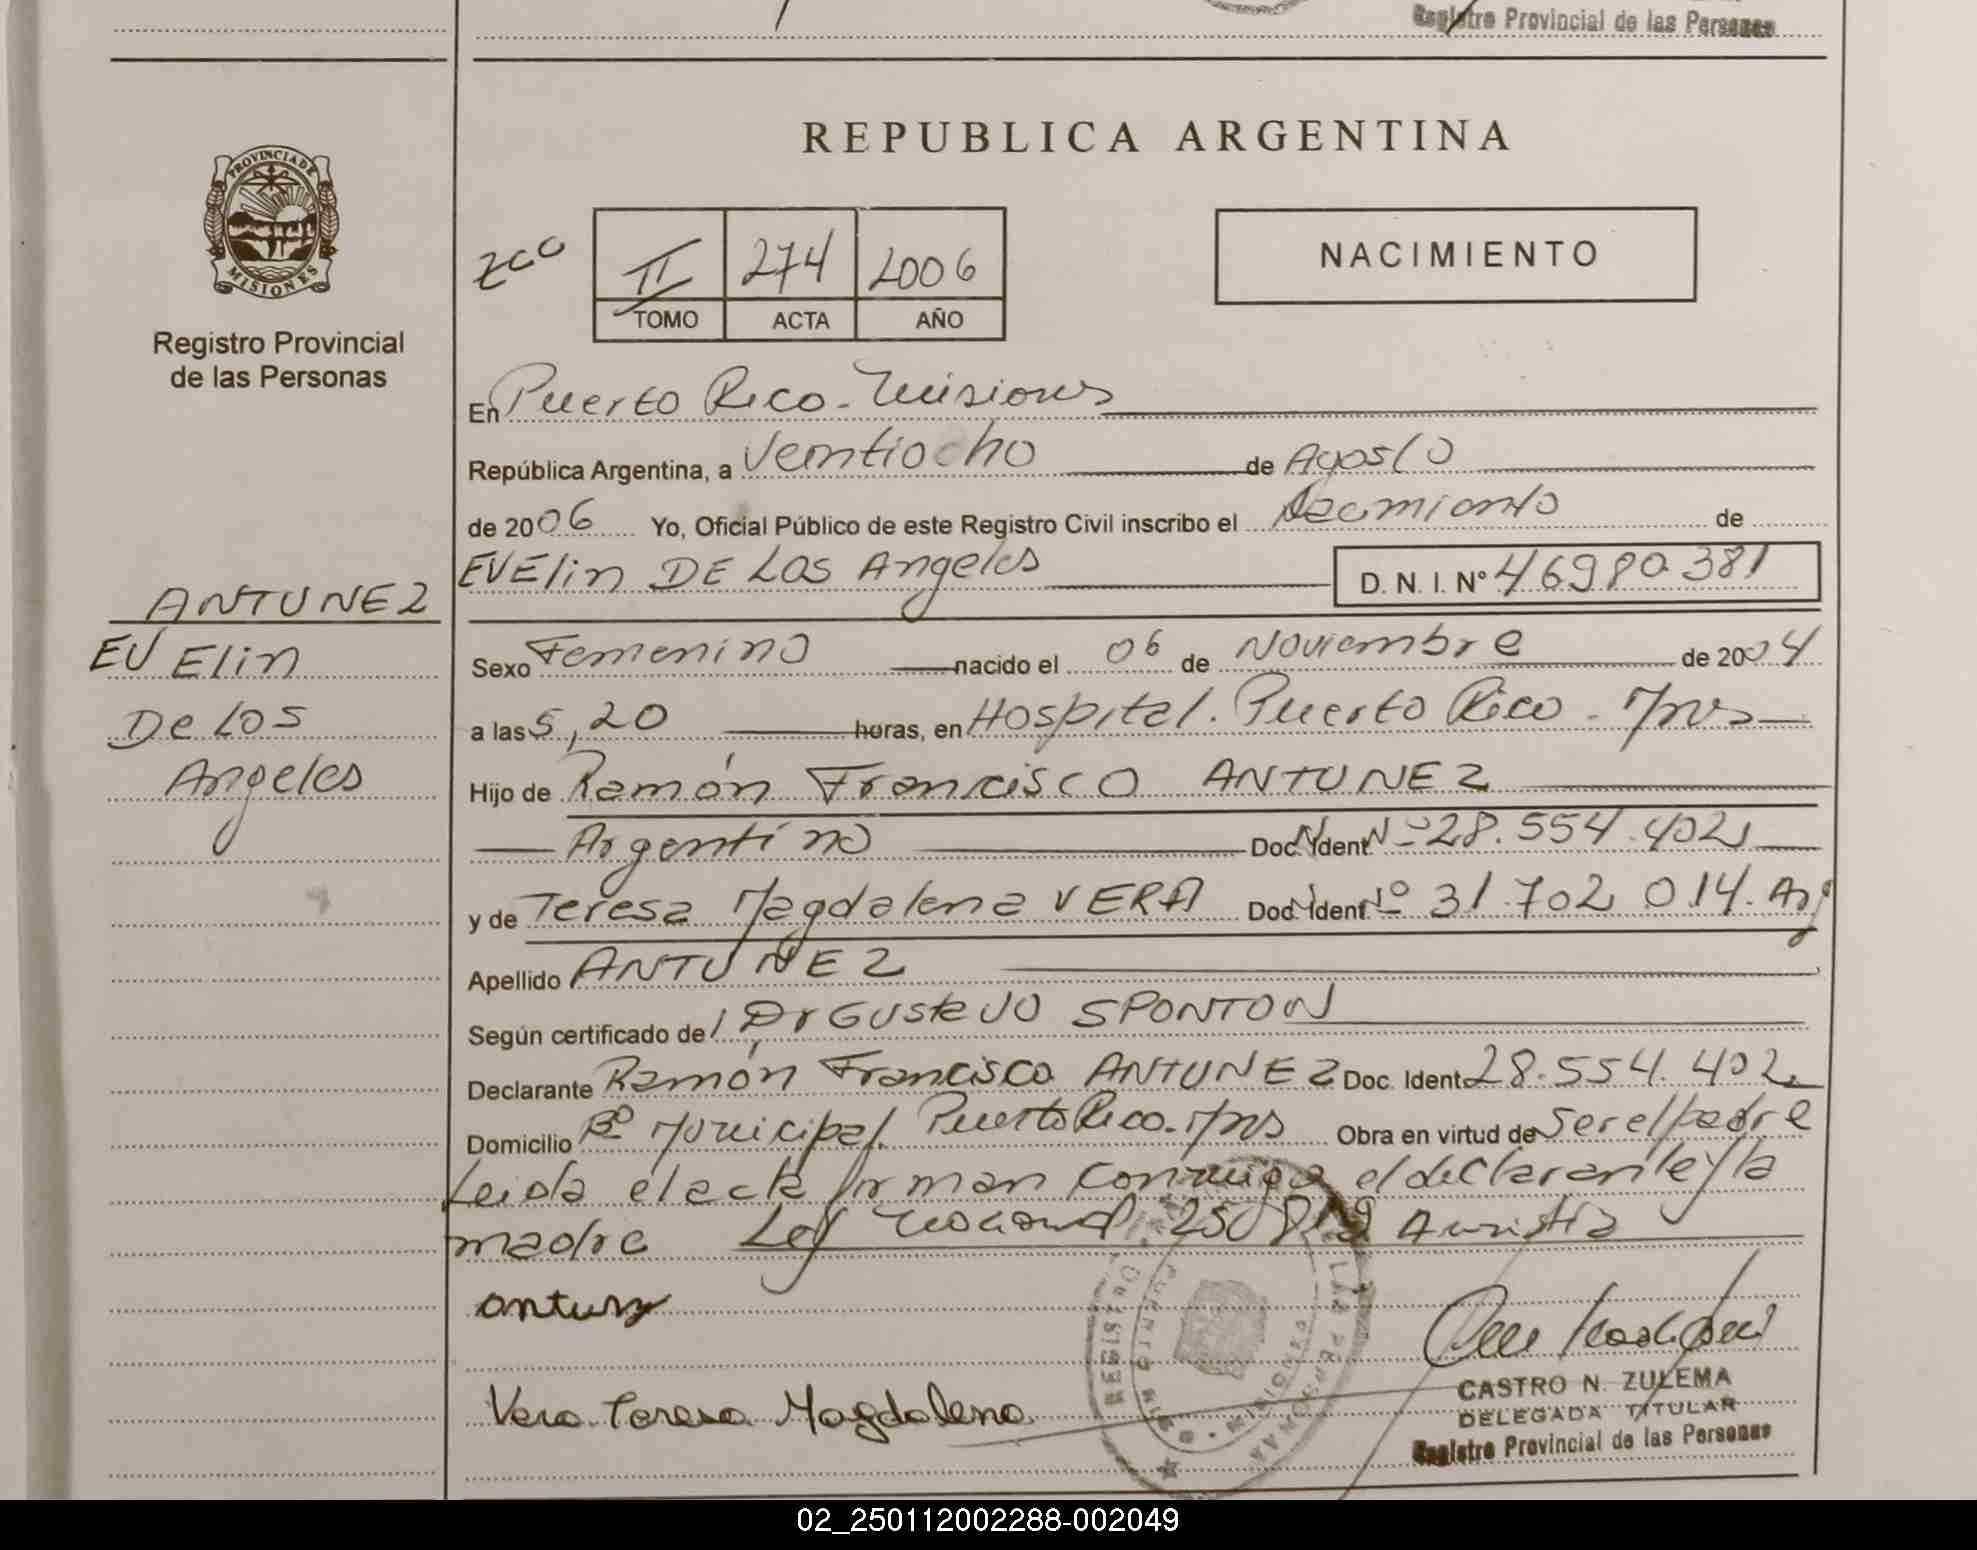 Registro Provincial de las Personas
REPUBLICA ARGENTINA
PROVINCIA DE
MISIONES
Registro Provincial
de las Personas
II 274 2006
TOMO ACTA AÑO
NACIMIENTO
En Puerto Rico - Misiones
República Argentina, a Veintiocho de Agosto
de 2006 Yo, Oficial Público de este Registro Civil inscribo el Nacimiento de
EVElin DE Los Angeles D. N. I. N° 46980381
ANTUNEZ
EVElin
De Los
Angeles
Sexo Femenino nacido el 06 de Noviembre de 2004
a las 5,20 horas, en Hospital. Puerto Rico - Mns
Hijo de Ramón Francisco ANTUNEZ
Argentino Doc. Ident. Nº 28.554.402
y de Teresa Magdalena VERA Doc. Ident. Nº 31.702.014. Arg
Apellido ANTUNEZ
Según certificado de Dr Gustavo SPONTON
Declarante Ramón Francisco ANTUNEZ Doc. Ident. 28.554.402
Domicilio Bº Municipal. Puerto Rico. Mns Obra en virtud de ser el padre
Leida el acta firman conmigo el declarante y la
madre Ley Nacional 25.819 Amnistia
Antunz
Vera Teresa Magdalena
CASTRO N. ZULEMA
DELEGADA TITULAR
Registro Provincial de las Personas
02_250112002288-002049